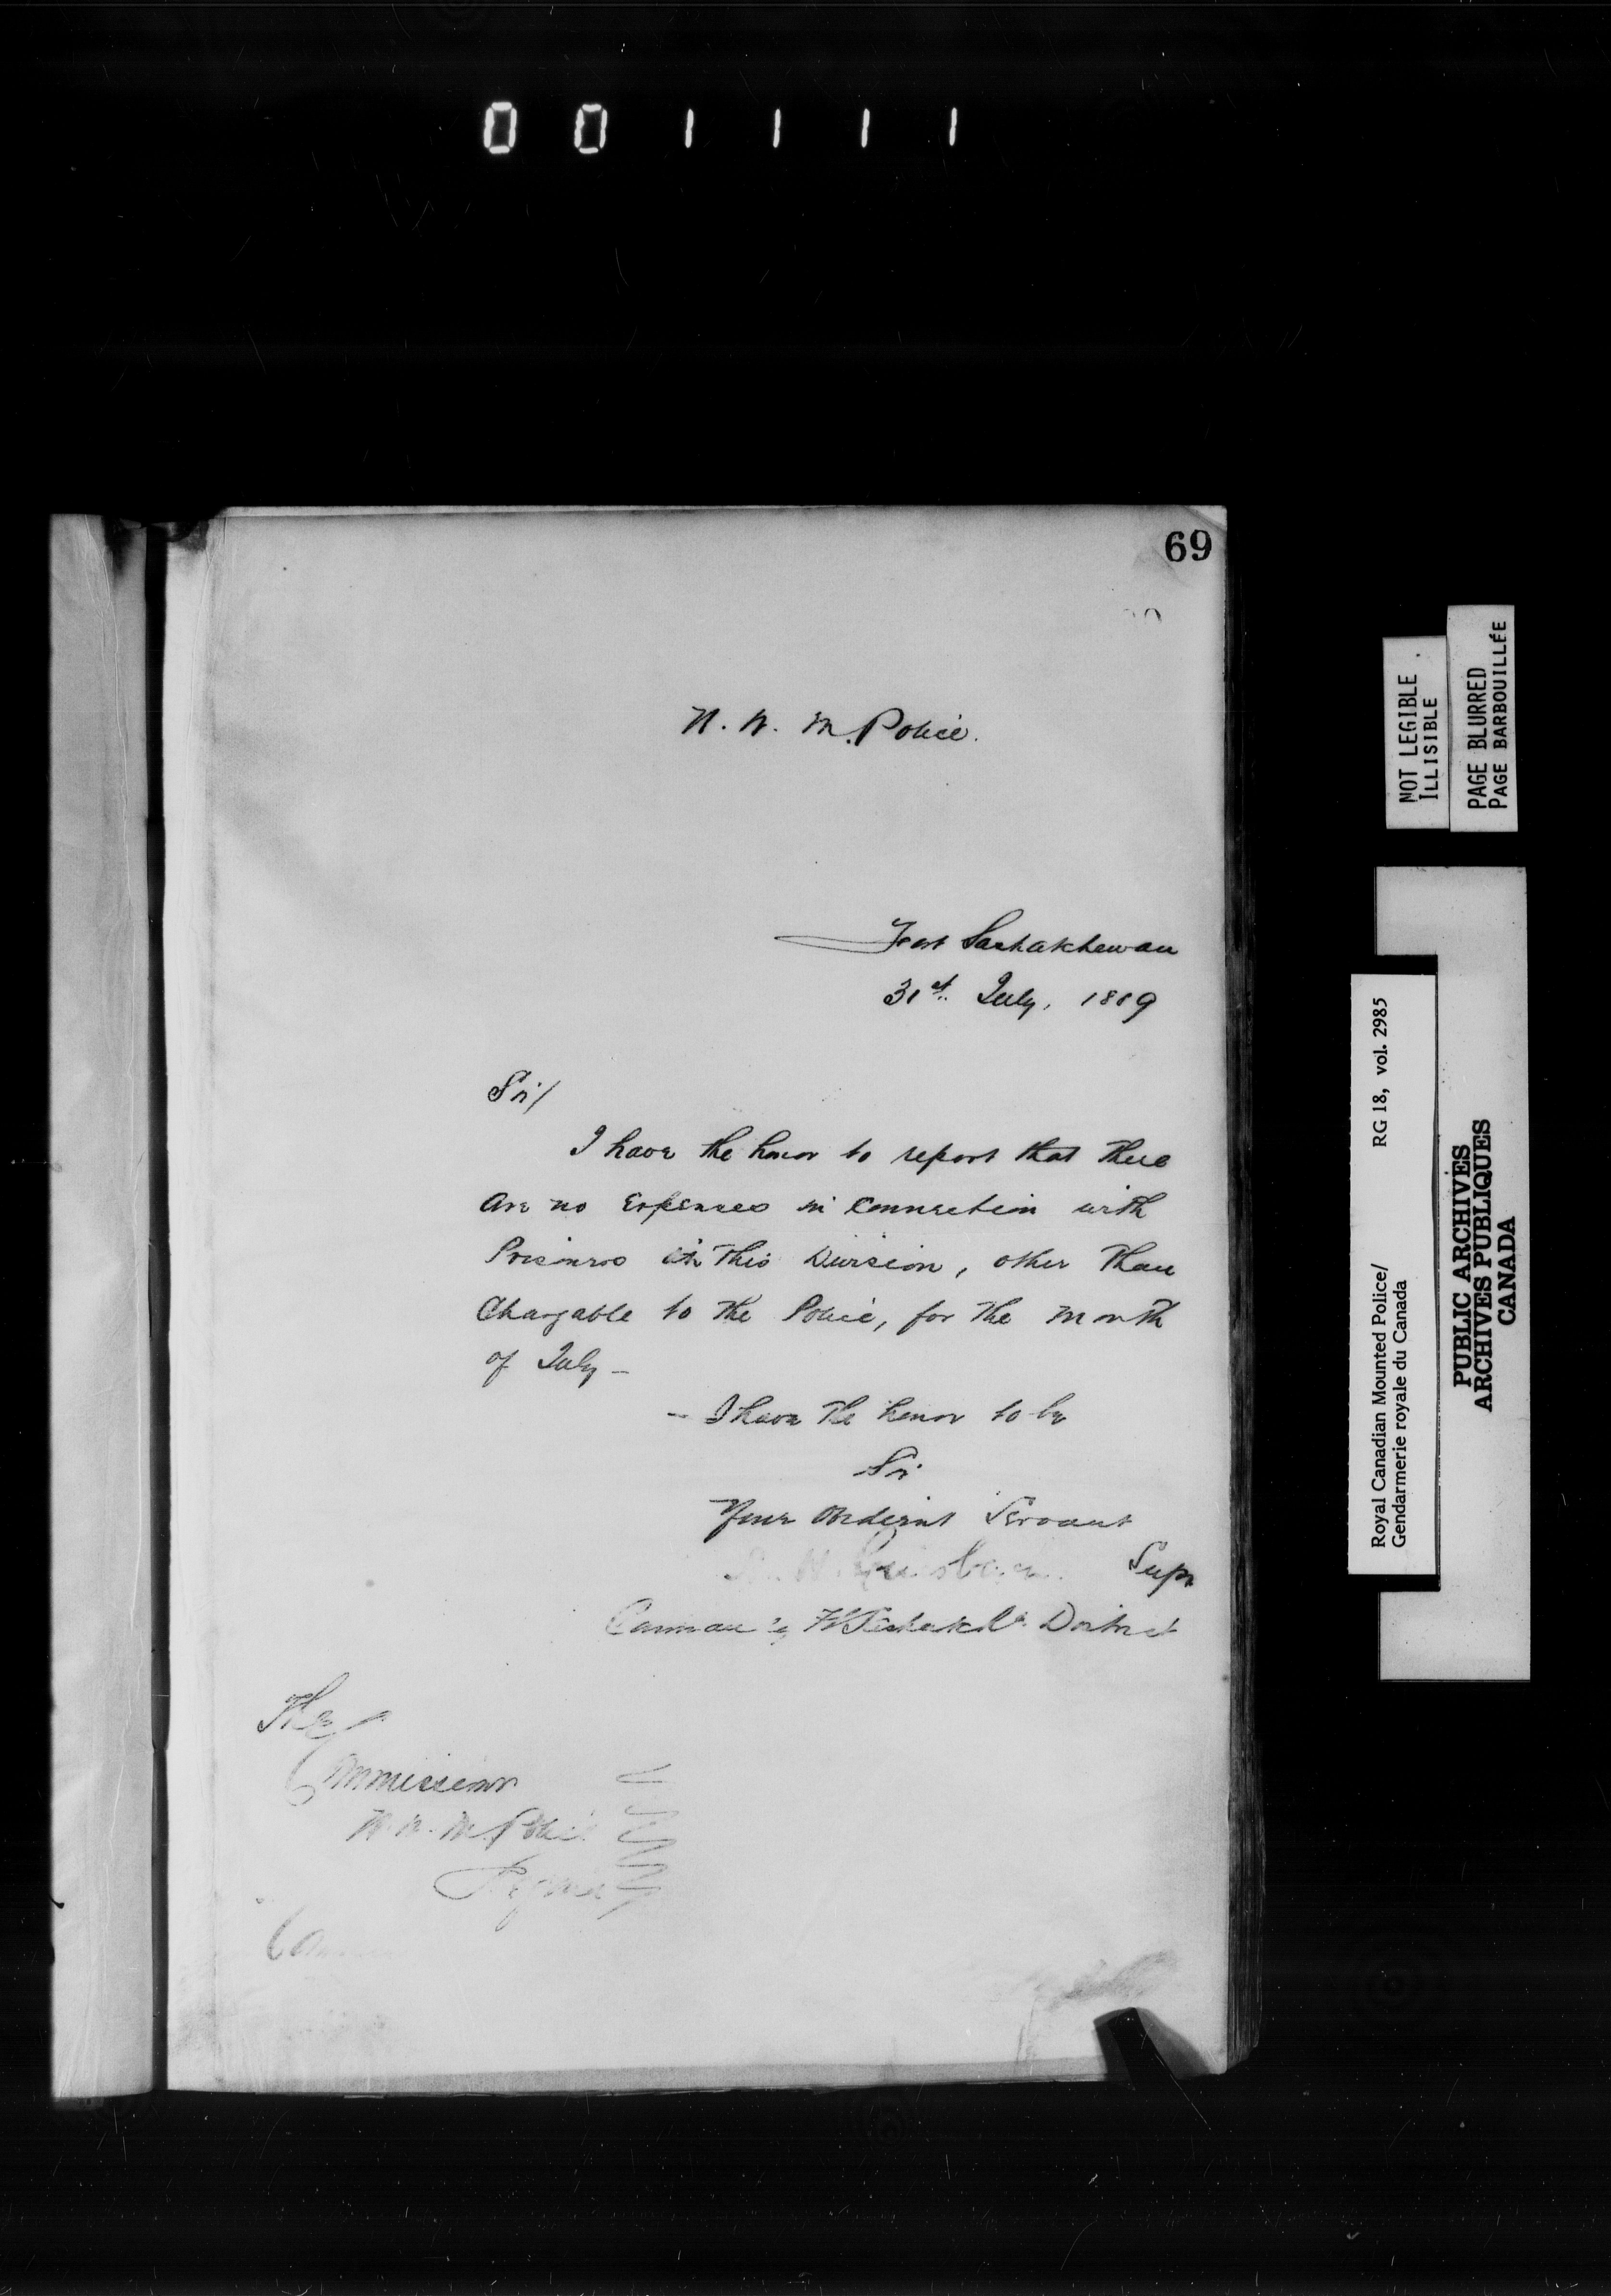 001111
69
N. W. M. Police.
Fort Saskatchewan
31st. July, 1889
Sir/
I have the honor to report that there
are no Expenses in Connection with
Prisoners in this Division, other than
Chargable to the Police, for the month
of July –
– I have the honor to be
Sir
Your Obedient Servant
Supt
District
The
Commissioner
N. W. M. Police
Regina
NOT LEGIBLE
ILLISIBLE
PAGE BLURRED
PAGE BARBOUILLÉE
Royal Canadian Mounted Police/ RG 18, vol. 2985
Gendarmerie royale du Canada
PUBLIC ARCHIVES
ARCHIVES PUBLIQUES
CANADA